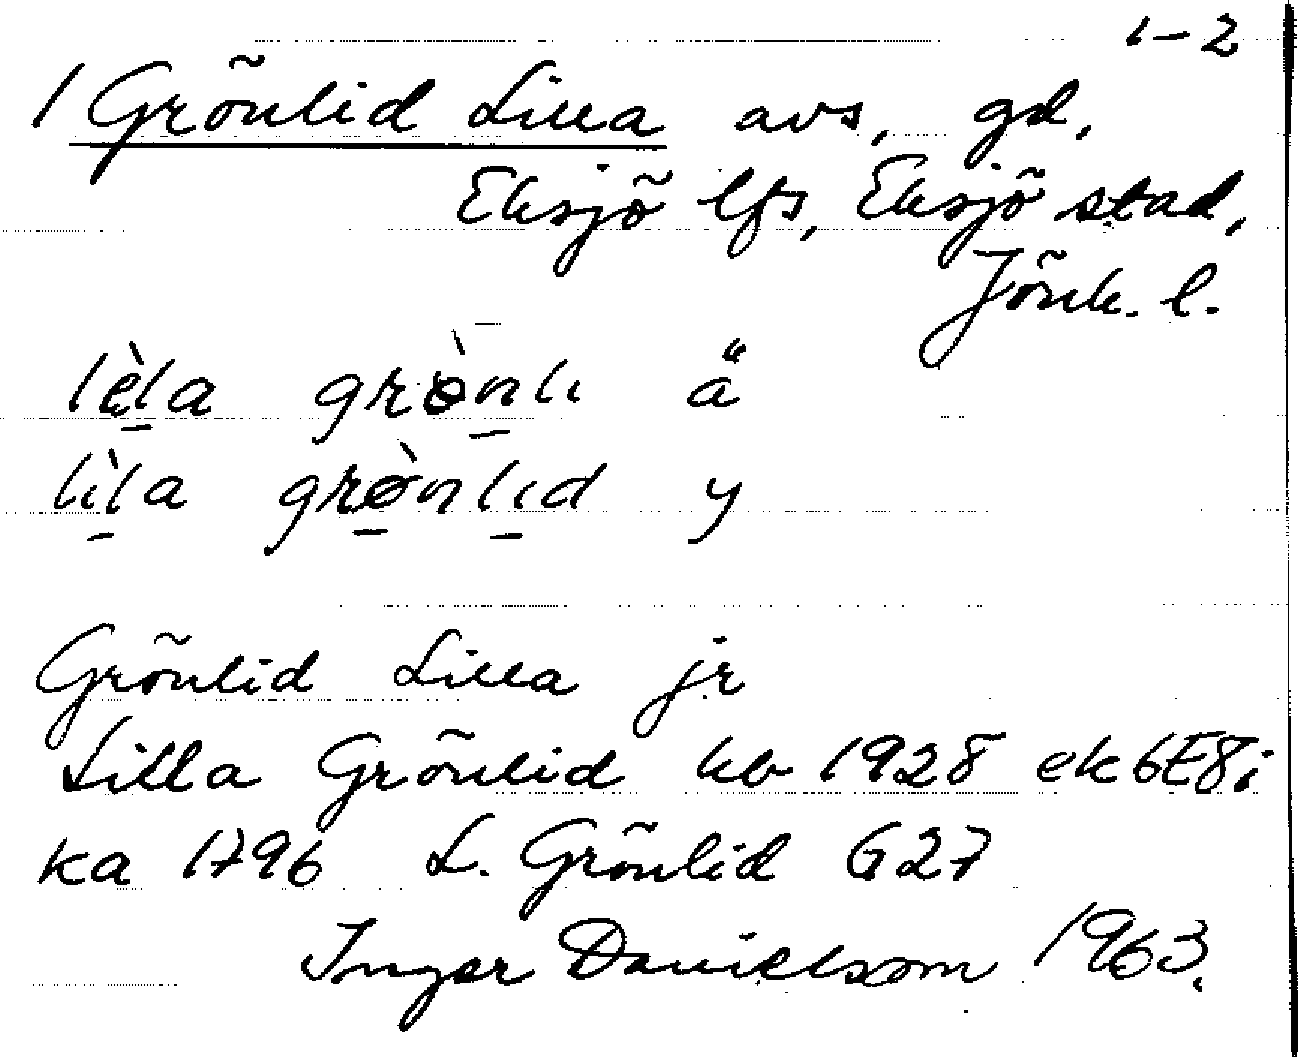 1-2
1 Grönlid Lilla avs, gd,
Eksjö lfs, Eksjö stad,
Jönk. l.
lèla grònlı ä
lìla grònlıd y
Grönlid Lilla jr
Lilla Grönlid hb 1928 ek 6E8i
ka 1796 L. Grönlid G27
Inger Danielsson 1963.